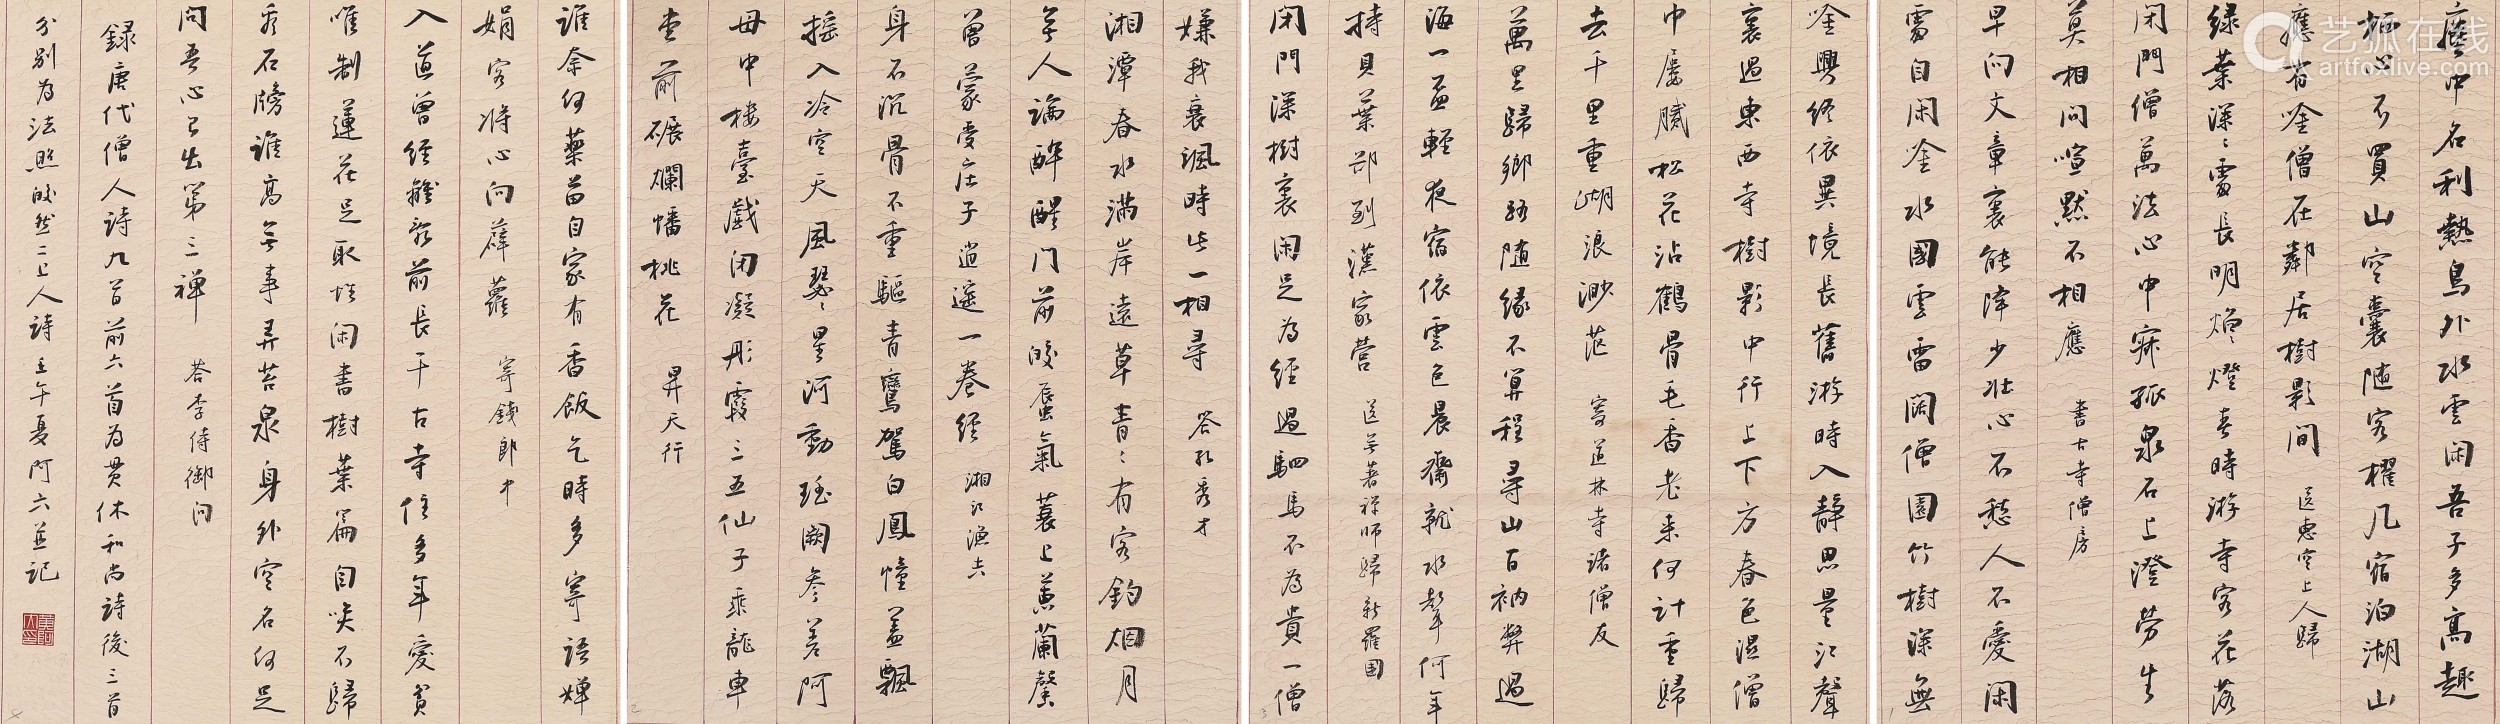 塵中名利熱鳥外水雲閑吾子多高趣
栖心不買山空囊隨客櫂几宿泊湖山
應有吟僧在鄰居樹影間 送惠空上人歸
绿葉深ゝ處長明焰ゝ燈春時游寺客花落
閉門僧萬法心中寂孤泉石上澄勞生
莫相問喧默不相應 書古寺僧房
早向文章裏能降少壯心不愁人不愛閑
處自閑吟水國雲雷闊僧園竹樹深無
吟興終依異境長舊游時入靜思量江聲
裏過東西寺樹影中行上下方春色濕僧
巾屨膩松花沾鶴骨毛香老来何計重歸
去千里重湖浪渺茫 寄道林寺諸僧友
萬里歸鄉路随緣不算程尋山百衲弊過
海一盃輕夜宿依雲色晨齋就水聲何年
持貝葉却到漢家營 送無著禪師歸新羅國
閉門深樹裏閑足為經過駟馬不為貴一僧
嫌我衰颯時此一相尋 答孔秀才
湘潭春水滿岸遠草青ゝ有客釣烟月
無人論醉醒门前蛟蜃氣蓑上蕙蘭馨
曾蒙受庄子逍遥一卷經 湘江漁父
身不沉骨不重驅青鸞駕白鳳幢蓋飄
摇入冷空天風瑟ゝ星河動瑶闕參差阿
母中樓臺戲閉凝彤霞三五仙子乘龍車
堂前碾爛蟠桃花 昇天行
誰奈何藥苗自家有香飯乞時多寄語嬋
娟客將心向薜蘿 寄錢郎中
入道曾經離亂前長干古寺住多年愛貧
唯制蓮花足取性閑書樹葉篇自笑不歸
看石牓誰高無事弄苔泉身外空名何足
問吾心已出第三禅 答李侍御问
録唐代僧人詩九首前六首为贯休和尚詩後三首
分别为法照皎然二上人詩 壬午夏阿六並記
艺狐在线
artfoxlive.com